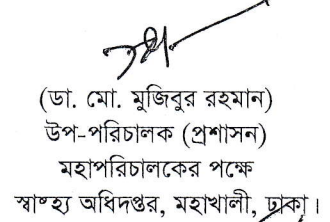 (ডা. মো. মুজিবুর রহমান)
উপ-পরিচালক (প্রশাসন)
মহাপরিচালকের পক্ষে
স্বাস্হ্য অধিদপ্তর, মহাখালী, ঢাকা।